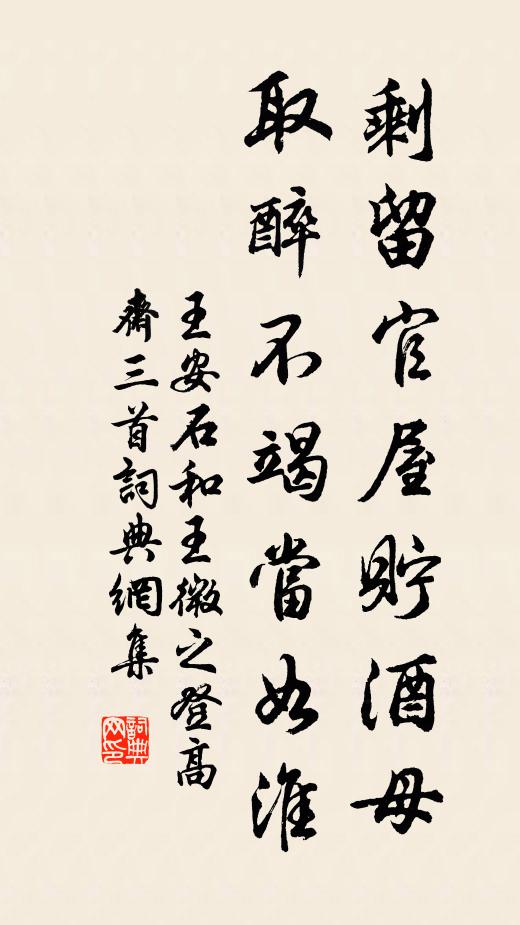 剩留官屋貯酒母
取醉不竭當如淮
王安石和王微之登高
齋三首詞典網集
詞典網印